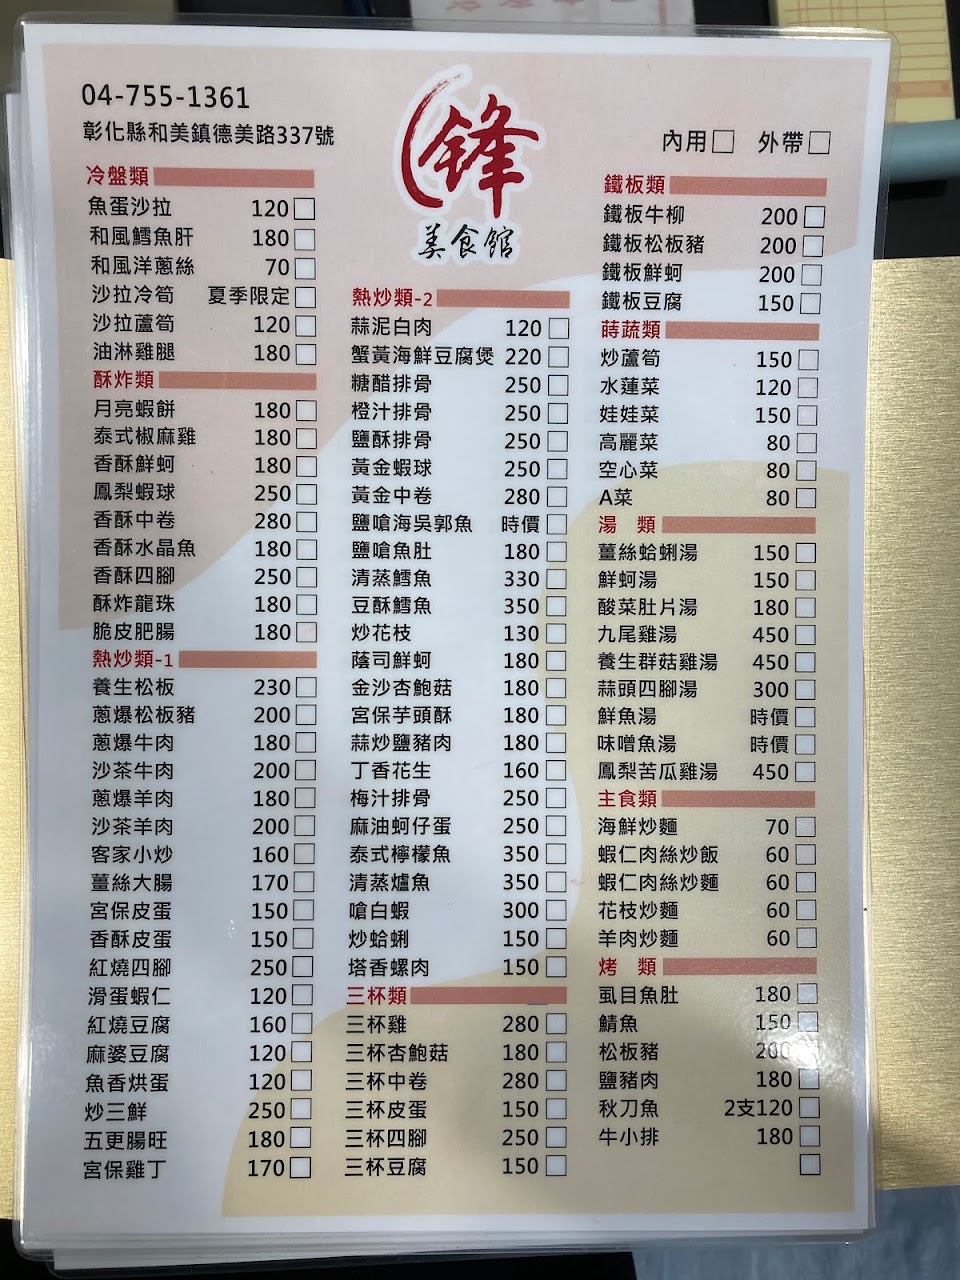 04-755-1361
彰化縣和美鎮德美路337號
鋒
美食館
內用□ 外帶□
冷盤類
魚蛋沙拉 120
和風鱈魚肝 180
和風洋蔥絲 70
沙拉冷筍 夏季限定
沙拉蘆筍 120
油淋雞腿 180
酥炸類
月亮蝦餅 180
泰式椒麻雞 180
香酥鮮蚵 180
鳳梨蝦球 250
香酥中卷 280
香酥水晶魚 180
香酥四腳 250
酥炸龍珠 180
脆皮肥腸 180
熱炒類-1
養生松板 230
蔥爆松板豬 200
蔥爆牛肉 180
沙茶牛肉 200
蔥爆羊肉 180
沙茶羊肉 200
客家小炒 160
薑絲大腸 170
宮保皮蛋 150
香酥皮蛋 150
紅燒四腳 250
滑蛋蝦仁 120
紅燒豆腐 160
麻婆豆腐 120
魚香烘蛋 120
炒三鮮 250
五更腸旺 180
宮保雞丁 170
熱炒類-2
蒜泥白肉 120
蟹黃海鮮豆腐煲 220
糖醋排骨 250
橙汁排骨 250
鹽酥排骨 250
黃金蝦球 250
黃金中卷 280
鹽嗆海吳郭魚 時價
鹽嗆魚肚 180
清蒸鱈魚 330
豆酥鱈魚 350
炒花枝 130
蔭司鮮蚵 180
金沙杏鮑菇 180
宮保芋頭酥 180
蒜炒鹽豬肉 180
丁香花生 160
梅汁排骨 250
麻油蚵仔蛋 250
泰式檸檬魚 350
清蒸爐魚 350
嗆白蝦 300
炒蛤蜊 150
塔香螺肉 150
三杯類
三杯雞 280
三杯杏鮑菇 180
三杯中卷 280
三杯皮蛋 150
三杯四腳 250
三杯豆腐 150
鐵板類
鐵板牛柳 200
鐵板松板豬 200
鐵板鮮蚵 200
鐵板豆腐 150
蒔蔬類
炒蘆筍 150
水蓮菜 120
娃娃菜 150
高麗菜 80
空心菜 80
A菜 80
湯 類
薑絲蛤蜊湯 150
鮮蚵湯 150
酸菜肚片湯 180
九尾雞湯 450
養生群菇雞湯 450
蒜頭四腳湯 300
鮮魚湯 時價
味噌魚湯 時價
鳳梨苦瓜雞湯 450
主食類
海鮮炒麵 70
蝦仁肉絲炒飯 60
蝦仁肉絲炒麵 60
花枝炒麵 60
羊肉炒麵 60
烤 類
虱目魚肚 180
鯖魚 150
松板豬 200
鹽豬肉 180
秋刀魚 2支120
牛小排 180